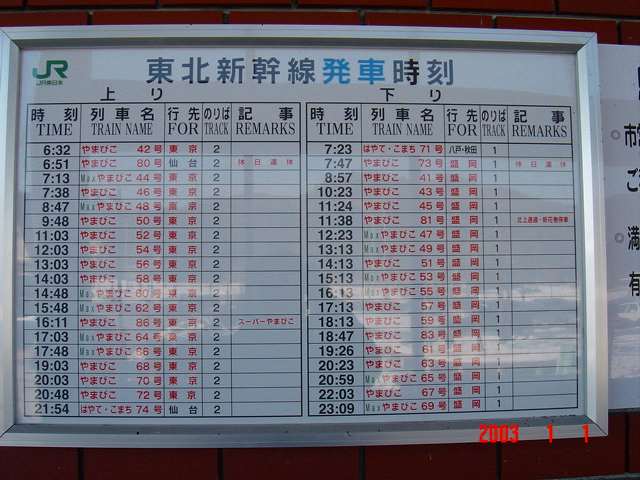 JR
JR東日本
東北新幹線発車時刻
上り
時刻 列車名 行先 のりば 記事
TIME TRAIN NAME FOR TRACK REMARKS
6:32 やまびこ 42号 東京 2
6:51 やまびこ 80号 仙台 2 休日運休
7:13 Maxやまびこ 44号 東京 2
7:38 やまびこ 46号 東京 2
8:47 Maxやまびこ 48号 東京 2
9:48 やまびこ 50号 東京 2
11:03 やまびこ 52号 東京 2
12:03 やまびこ 54号 東京 2
13:03 やまびこ 56号 東京 2
14:03 やまびこ 58号 東京 2
14:48 Maxやまびこ 60号 東京 2
15:48 Maxやまびこ 62号 東京 2
16:11 やまびこ 86号 東京 2 スーパーやまびこ
17:03 Maxやまびこ 64号 東京 2
17:48 Maxやまびこ 66号 東京 2
19:03 やまびこ 68号 東京 2
20:03 やまびこ 70号 東京 2
20:48 やまびこ 72号 東京 2
21:54 はやて・こまち 74号 仙台 2
下り
時刻 列車名 行先 のりば 記事
TIME TRAIN NAME FOR TRACK REMARKS
7:23 はやて・こまち 71号 八戸・秋田 1
7:47 やまびこ 73号 盛岡 1 休日運休
8:57 やまびこ 41号 盛岡 1
10:23 やまびこ 43号 盛岡 1
11:24 やまびこ 45号 盛岡 1
11:38 やまびこ 81号 盛岡 1 北上通過・新花巻停車
12:23 Maxやまびこ 47号 盛岡 1
13:13 Maxやまびこ 49号 盛岡 1
14:13 やまびこ 51号 盛岡 1
15:13 Maxやまびこ 53号 盛岡 1
16:13 Maxやまびこ 55号 盛岡 1
17:13 やまびこ 57号 盛岡 1
18:13 やまびこ 59号 盛岡 1
18:47 やまびこ 83号 盛岡 1
19:26 やまびこ 61号 盛岡 1
20:23 やまびこ 63号 盛岡 1
20:59 Maxやまびこ 65号 盛岡 1
22:03 やまびこ 67号 盛岡 1
23:09 Maxやまびこ 69号 盛岡 1
2003 1 1